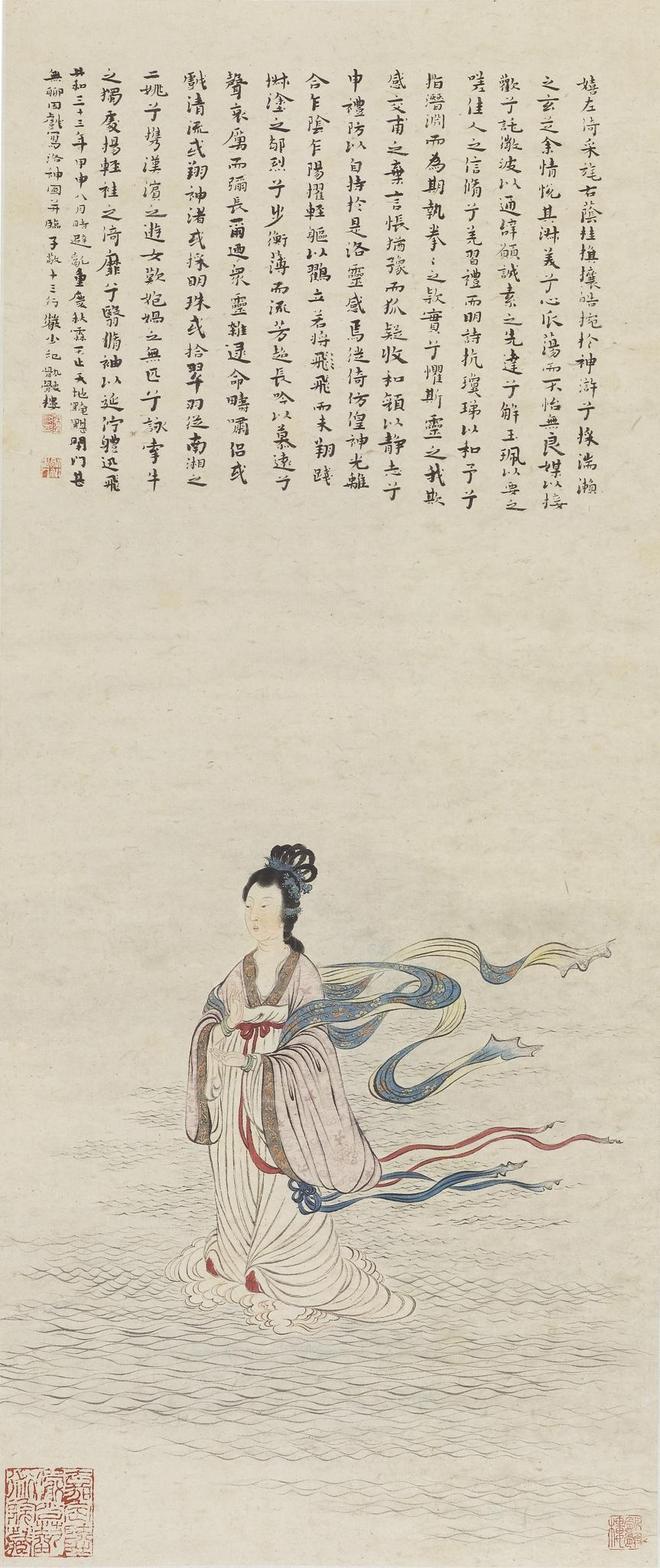 嬉左倚采旄右蔭桂旗攘皓捥於神滸兮採湍瀨
之玄芝余情悅其淋美兮心振蕩而不怡無良媒以接
歡兮託微波以通辭願誠素之先達兮解玉珮以要之
嗟佳人之信脩兮羌習禮而明詩抗瓊珶以和予兮
指潛淵而為期執拳〻之欵實兮懼斯靈之我欺
感交甫之棄言悵猶豫而狐疑收和顏以靜志兮
申禮防以自持於是洛靈感焉徙倚仿偟神光離
合乍陰乍陽擢輕軀以鶴立若將飛飛而未翔踐
椒塗之郁烈兮步衡薄而流芳超長吟以慕遠兮
聲哀厲而彌長爾迺衆靈雜遝命疇嘯侶或
戲清流或翔神渚或採明珠或拾翠羽從南湘之
二姚兮攜漢濱之遊女歎匏媧之無匹兮詠牽牛
之獨處揚輕袿之倚靡兮翳脩袖以延佇體迅飛
共和三十三年甲申八月時避亂重慶秋霖不止天地黯黮閉門甚
無聊因戲寫洛神圖并臨子敬十三行 小記 樓